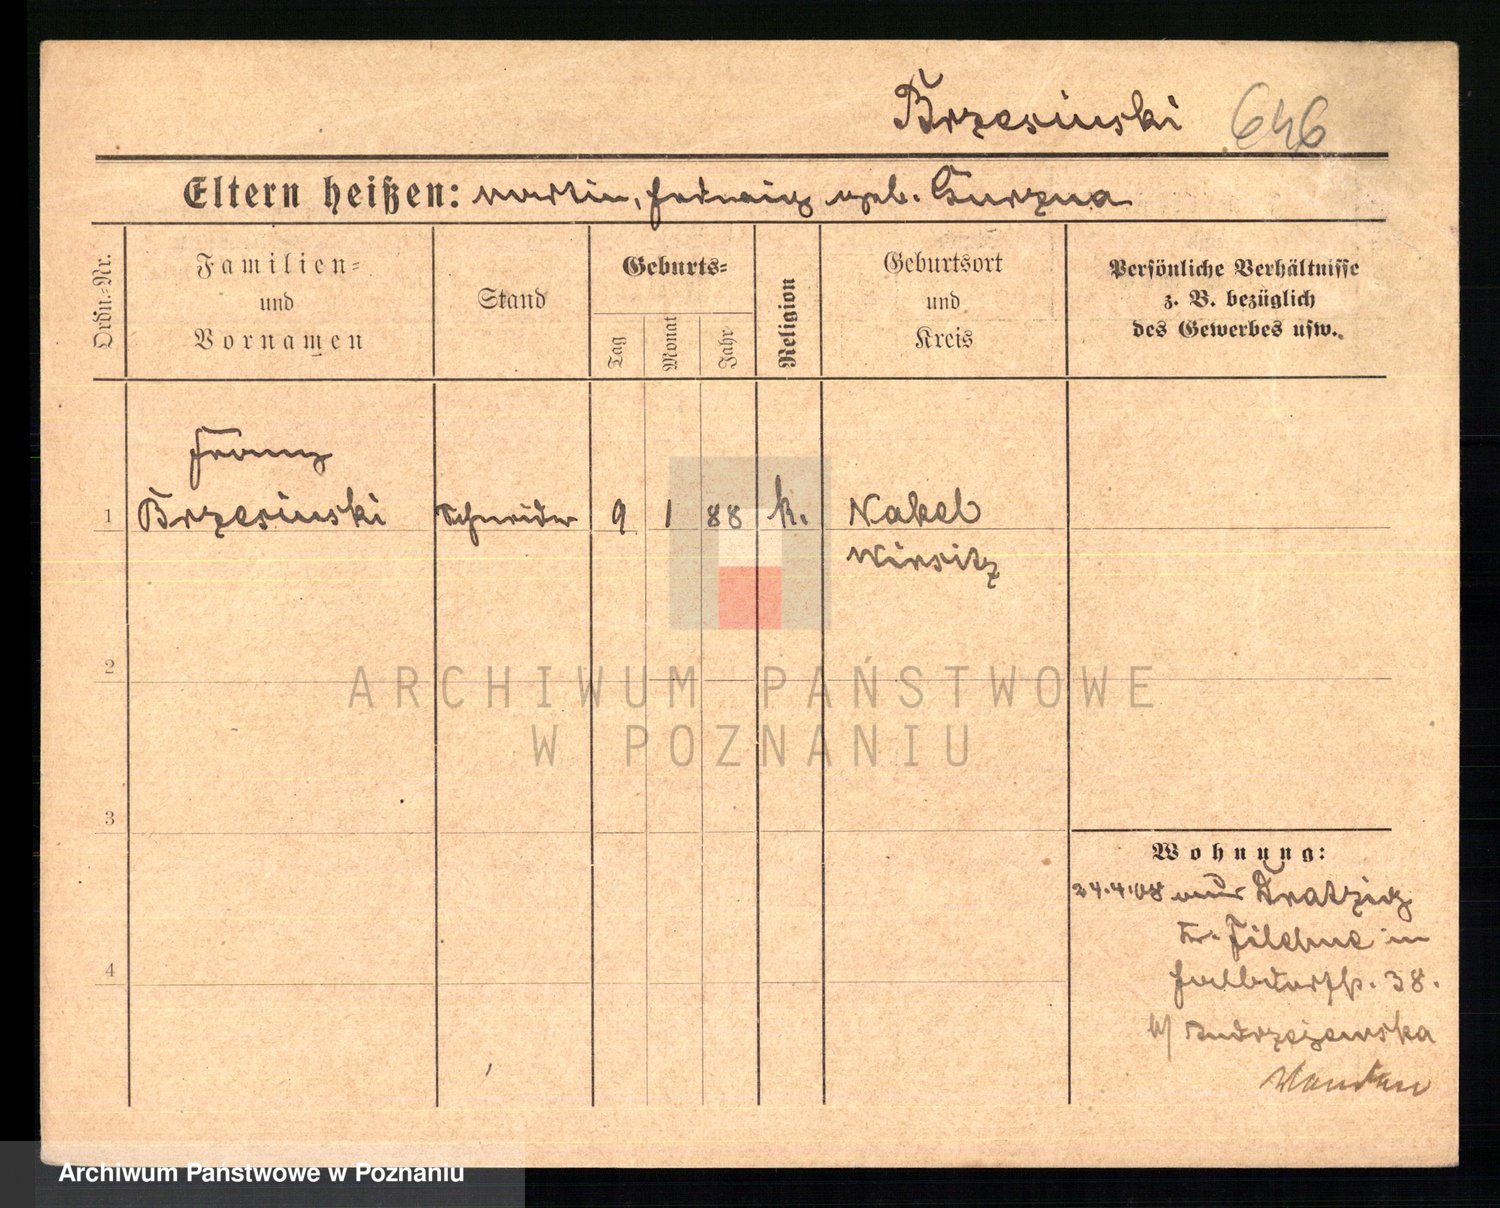 Brzesinski 646
Eltern heißen: Martin, Hedwig geb.
Ordn.-Nr.
Familien-
und
Vornamen
Stand
Geburts-
Tag
Monat
Jahr
Religion
Geburtsort
und
Kreis
Persönliche Verhältnisse
z. B. bezüglich
des Gewerbes usw.
Franz
1 Brzesinski Schneider 9 1 88 k. Nakel
Wirsitz
2
ARCHIWUM PAŃSTWOWE
W POZNANIU
3
Wohnung:
24.4.08 Dratzig
Kr. Filehne in
Halbdorfstr. 38.
b/ Andrzejewska
4
Archiwum Państwowe w Poznaniu